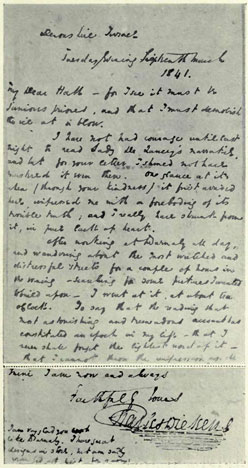 Devonshire Terrace
Tuesday Evening Sixteenth March
1841.
My Dear Hall - for I see it must be
Junius prioress, and that I must demolish
the ice at a blow.
I have not had courage until last
night to read Lady De Lancey's narrative,
and but for your letter, I should not have
mustered it even then. One glance at it
when (through your kindness) it first arrived
had impressed me with a foreboding of its
terrible truth, and I really have shrunk from
it, in pure lack of heart.
After working at Barnaby all day,
and wandering about the most wretched and
distressful streets for a couple of hours in
the evening - searching for some pictures I wanted
to build upon - I went at it, at about ten
o'Clock. To say that the reading that
most astonishing and tremendous account has
constituted an epoch in my life - that I
never shall forget the lightest word of it -
that I cannot throw the impression
mine I am now and always
Faithfully Yours
Charles Dickens
I am very glad you
like Barnaby. I have great
designs in store, but am sadly